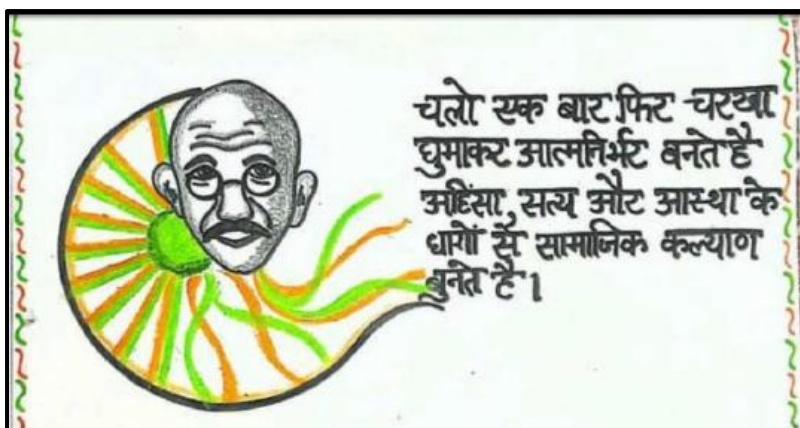 चलो एक बार फिर चरखा
घुमाकर आत्मनिर्भर बनते है
अहिंसा, सत्य और आस्था के
धागों से सामाजिक कल्याण
बुनते है।